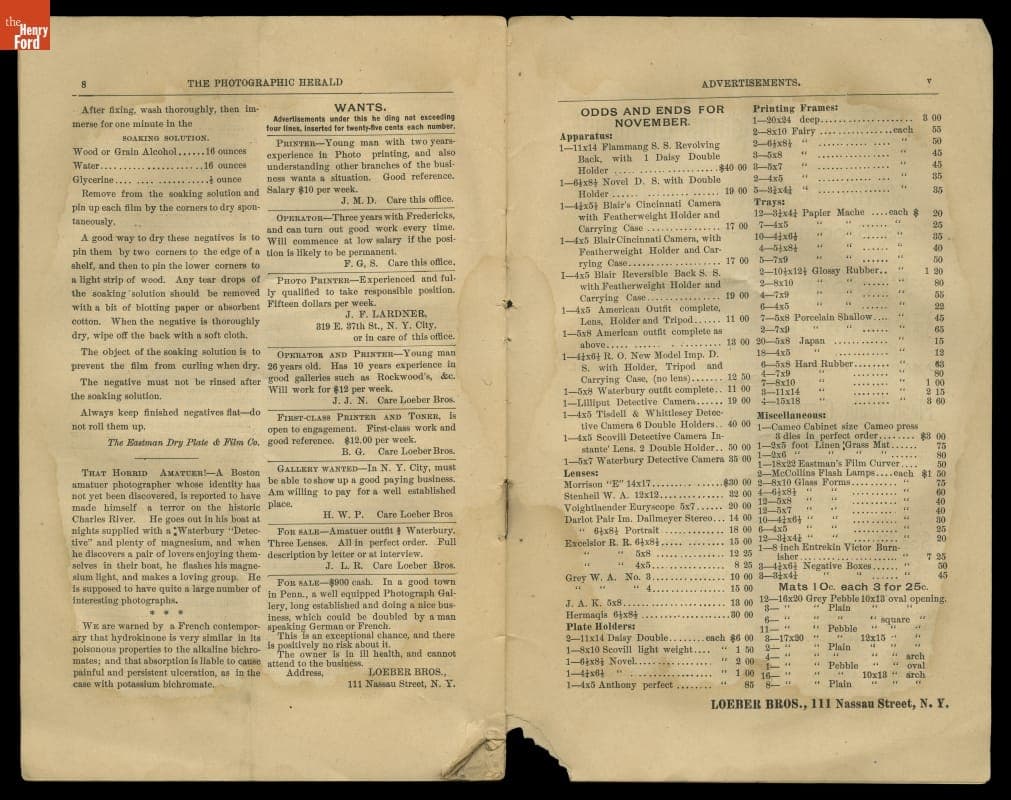 the
Henry
Ford
8
THE PHOTOGRAPHIC HERALD
After fixing, wash thoroughly, then im-
merse for one minute in the
SOAKING SOLUTION.
Wood or Grain Alcohol......16 ounces
Water........................16 ounces
Glycerine.... ................½ ounce
Remove from the soaking solution and
pin up each film by the corners to dry spon-
taneously.
A good way to dry these negatives is to
pin them by two corners to the edge of a
shelf, and then to pin the lower corners to
a light strip of wood. Any tear drops of
the soaking solution should be removed
with a bit of blotting paper or absorbent
cotton. When the negative is thoroughly
dry, wipe off the back with a soft cloth.
The object of the soaking solution is to
prevent the film from curling when dry.
The negative must not be rinsed after
the soaking solution.
Always keep finished negatives flat—do
not roll them up.
The Eastman Dry Plate & Film Co.
THAT HORRID AMATUER!—A Boston
amatuer photographer whose identity has
not yet been discovered, is reported to have
made himself a terror on the historic
Charles River. He goes out in his boat at
nights supplied with a Waterbury "Detec-
tive" and plenty of magnesium, and when
he discovers a pair of lovers enjoying them-
selves in their boat, he flashes his magne-
sium light, and makes a loving group. He
is supposed to have quite a large number of
interesting photographs.
* * *
WE are warned by a French contempor-
ary that hydrokinone is very similar in its
poisonous properties to the alkaline bichro-
mates; and that absorption is liable to cause
painful and persistent ulceration, as in the
case with potassium bichromate.
WANTS.
Advertisements under this he ding not exceeding
four lines, inserted for twenty-five cents each number.
PRINTER—Young man with two years-
experience in Photo printing, and also
understanding other branches of the busi-
ness wants a situation. Good reference.
Salary $10 per week.
J. M. D. Care this office.
OPERATOR—Three years with Fredericks,
and can turn out good work every time.
Will commence at low salary if the posi-
tion is likely to be permanent.
F. G, S. Care this office.
PHOTO PRINTER—Experienced and ful-
ly qualified to take responsible position.
Fifteen dollars per week.
J. F. LARDNER,
319 E. 37th St., N. Y. City,
or in care of this office.
OPERATOR AND PRINTER—Young man
26 years old. Has 10 years experience in
good galleries such as Rockwood's, &c.
Will work for $12 per week.
J. J. N. Care Loeber Bros.
FIRST-CLASS PRINTER AND TONER, is
open to engagement. First-class work and
good reference. $12.00 per week.
B. G. Care Loeber Bros.
GALLERY WANTED—In N. Y. City, must
be able to show up a good paying business.
Am willing to pay for a well established
place.
H. W. P. Care Loeber Bros
FOR SALE—Amatuer outfit ½ Waterbury,
Three Lenses. All in perfect order. Full
description by letter or at interview.
J. L. R. Care Loeber Bros.
FOR SALE—$900 cash. In a good town
in Penn., a well equipped Photograph Gal-
lery, long established and doing a nice bus-
iness, which could be doubled by a man
speaking German or French.
This is an exceptional chance, and there
is positively no risk about it.
The owner is in ill health, and cannot
attend to the business.
Address, LOEBER BROS.,
111 Nassau Street, N. Y.
ADVERTISEMENTS. v
ODDS AND ENDS FOR
NOVEMBER.
Apparatus:
1—11x14 Flammang S. S. Revolving
Back, with 1 Daisy Double
Holder .......................$40 00
1—6½x8½ Novel D. S. with Double
Holder ....................... 19 00
1—4¼x5½ Blair's Cincinnati Camera
with Featherweight Holder and
Carrying Case ................. 17 00
1—4x5 Blair Cincinnati Camera, with
Featherweight Holder and Car-
rying Case..................... 17 00
1—4x5 Blair Reversible Back S. S.
with Featherweight Holder and
Carrying Case................. 19 00
1—4x5 American Outfit complete,
Lens, Holder and Tripod...... 11 00
1—5x8 American outfit complete as
above....... ....... . .......... 13 00
1—4¼x6½ R. O. New Model Imp. D.
S. with Holder, Tripod and
Carrying Case, (no lens)....... 12 50
1—5x8 Waterbury outfit complete.. 11 00
1—Lilliput Detective Camera....... 19 00
1—4x5 Tisdell & Whittlesey Detec-
tive Camera 6 Double Holders.. 40 00
1—4x5 Scovill Detective Camera In-
stante' Lens. 2 Double Holder.. 50 00
1—5x7 Waterbury Detective Camera 35 00
Lenses:
Morrison "E" 14x17..................$30 00
Stenheil W. A. 12x12................. 32 00
Voightlaender Euryscope 5x7....... 20 00
Darlot Pair Im. Dallmeyer Stereo... 14 00
" 6½x8½ Portrait .............. 18 00
Excelsior R. R. 6½x8½............... 15 00
" " 5x8 ................ 12 25
" " 4x5.................. 8 25
Grey W. A. No. 3.................... 10 00
" " " 4..................... 15 00
J. A. K. 5x8......................... 13 00
Hermaqis 6½x8½......................30 00
Plate Holders:
2—11x14 Daisy Double........each $6 00
1—8x10 Scovill light weight.... " 1 50
1—6½x8½ Novel................. " 2 00
1—4¼x6½ " ................... " 1 00
1—4x5 Anthony perfect ........ " 85
Printing Frames:
1—20x24 deep..................... 3 00
2—8x10 Fairy ...............each 55
2—6½x8½ " ............. .... " 50
3—5x8 " .................. " 45
3—5x7 " .................. " 45
2—4x5 " .................. " 35
5—3¼x4¼ " .................. " 35
Trays:
12—3¼x4¼ Papier Mache ....each $ 20
7—4x5 " " ...... " 25
10—4¼x6½ " " ...... " 35
4—5½x8½ " " ...... " 40
5—7x9 " " ...... " 50
2—10½x12½ Glossy Rubber.. " 1 20
2—8x10 " " ...... " 80
4—7x9 " " ...... " 55
6—4x5 " " ...... " 22
7—5x8 Porcelain Shallow.... " 45
2—7x9 " " ...... " 65
20—5x8 Japan ............... " 15
18—4x5 " ............... " 12
6—5x8 Hard Rubber........ " 63
4—7x9 " " ........ " 80
7—8x10 " " ........ " 1 00
3—11x14 " " ........ " 2 15
4—15x18 " " ........ " 3 60
Miscellaneous:
1—Cameo Cabinet size Cameo press
3 dies in perfect order........ $3 00
1—2x5 foot Linen Grass Mat...... 75
1—2x6 " " " ...... 80
1—18x22 Eastman's Film Curver.... 50
2—McCollins Flash Lamps....each $1 50
2—8x10 Glass Forms.......... " 75
4—6½x8½ " " .......... " 60
12—5x8 " " .......... " 40
12—5x7 " " .......... " 40
10—4¼x6½ " " .......... " 30
6—4x5 " " .......... " 25
12—3¼x4¼ " " .......... " 20
1—8 inch Entrekin Victor Burn-
isher........................ 7 25
3—4¼x6½ Negative Boxes...... " 50
3—3¼x4¼ " " ...... " 45
Mats 10c. each 3 for 25c.
12—16x20 Grey Pebble 10x13 oval opening.
3— " " Plain " " "
6— " " " " square "
11— " " Pebble " " "
3—17x20 " " 12x15 " "
2— " " Plain " " "
4— " " " " arch
1— " " Pebble " oval
16— " " " 10x13 " arch
8— " " Plain " " "
LOEBER BROS., 111 Nassau Street, N. Y.